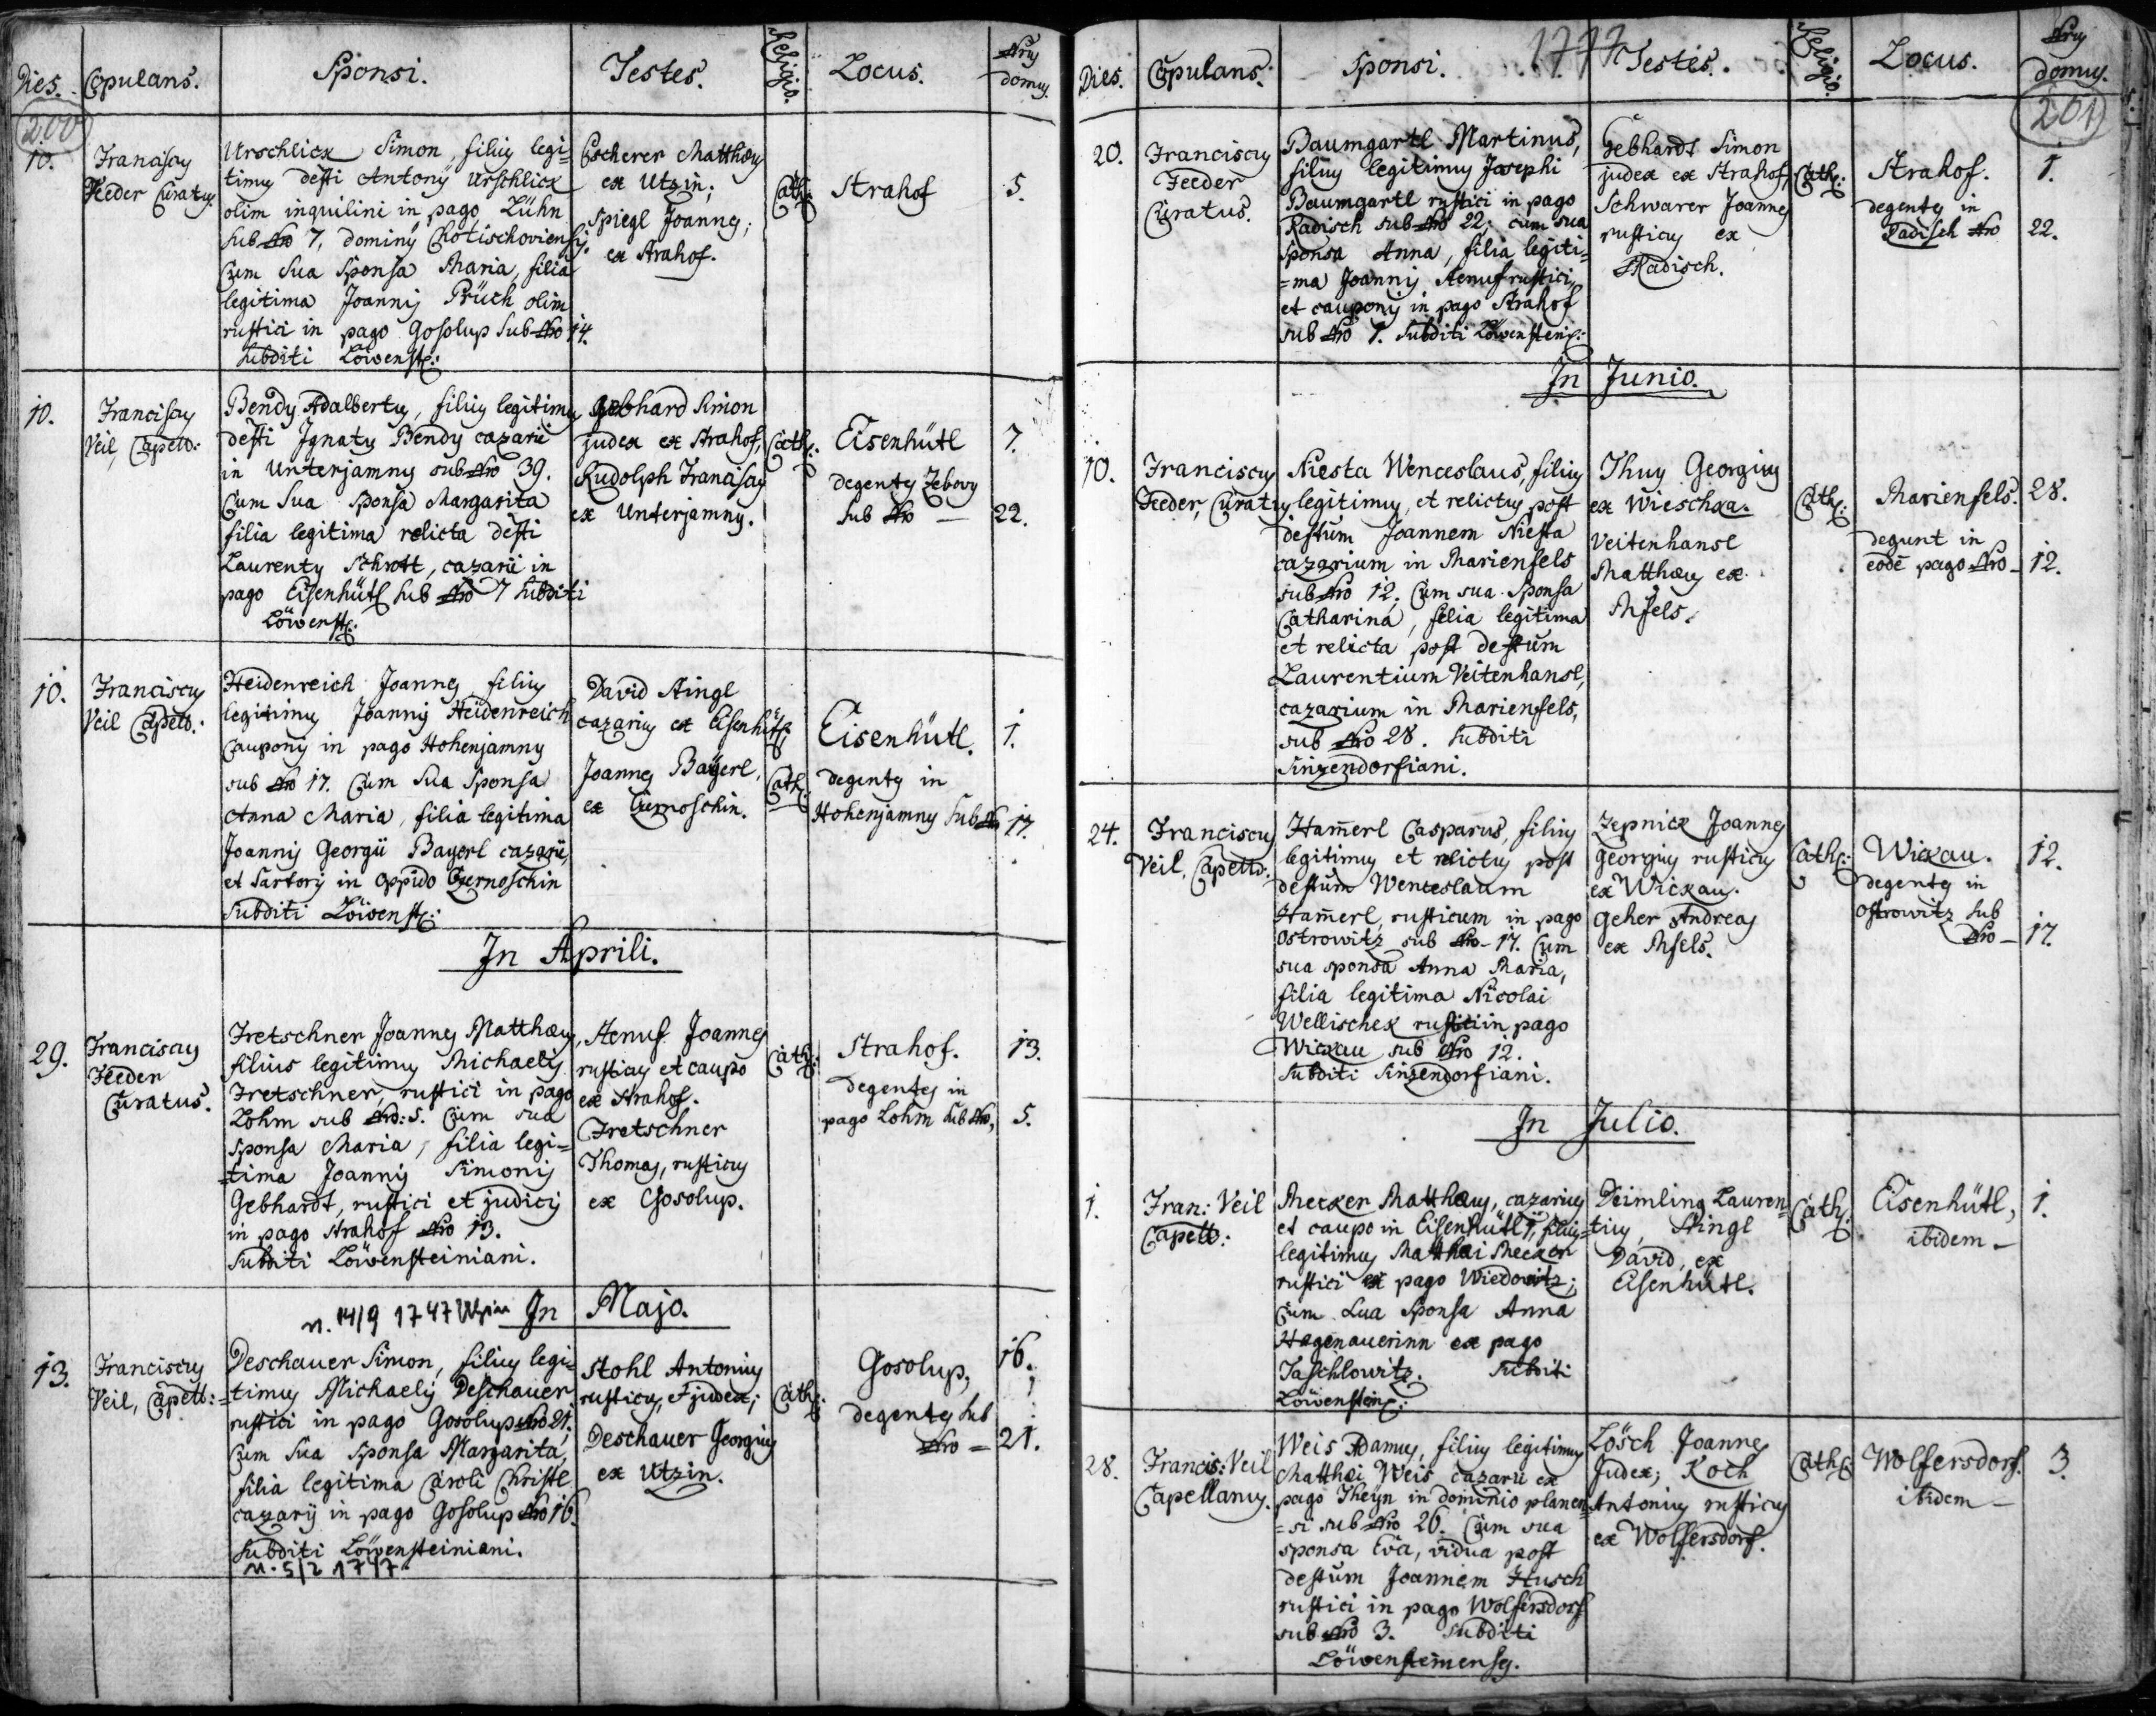 Dies. Copulans. Sponsi. Testes. Religio. Locus. Nrus domus.
200
10.
Franciscus
Feeder Curatus
Urschlick Simon, filius legi-
timus defti Antonÿ Urschlick
olim inquilini in pago Lühn
sub Nro 7, dominÿ Chotischoviensis.
Cum sua Sponsa Maria, filia
legitima Joannis Prüch olim
rustici in pago Gosolup sub Nro 14.
Subditi Löwenst:
Escherer Matthæus
ex Utzin;
Spiegl Joannes;
ex Strahof.
Cath:
Strahof
5.
10.
Franciscus
Veil, Capell:
Bendy Adalbertus, filius legitimus
defti Ignatÿ Bendy cazarii
in Unterjamny sub Nro 39.
Cum sua Sponsa Margarita
filia legitima relicta defti
Laurenty Schrott, cazarii in
pago Eisenhütl sub Nro 7 Subditi
Löwenst:
Gebhard Simon
judex ex Strahof,
Rudolph Franciscus
ex Unterjamny.
Cath:
Eisenhütl
degentes
sub Nro —
7.
22.
10.
Franciscus
Veil Capell:
Heidenreich Joannes filius
legitimus Joannis Heidenreich
Cauponis in pago Hohenjamny
sub Nro 17. Cum sua Sponsa
Anna Maria, filia legitima
Joannis Georgii Bayerl cazarii,
et Sartoris in oppido Czernoschin
Subditi Löwenst:
David Stingl
cazarius ex Eisenhütl
Joannes Bayerl,
ex Czernoschin.
Cath:
Eisenhütl.
degentes in
Hohenjamny sub Nro
1.
17.
In Aprili.
29.
Franciscus
Feeder
Curatus.
Fretschner Joannes Matthæus,
filius legitimus Michaelis
Fretschner, rustici in pago
Lohm sub Nro: 5. Cum sua
Sponsa Maria, filia legi-
=tima Joannis Simonis
Gebhardt, rustici et judicis
in pago Strahof Nro 13.
Subditi Löwensteiniani.
Henuf Joannes
rusticus et caupo
ex Strahof.
Fretschner
Thomas, rusticus
ex Gosolup.
Cath:
Strahof.
degentes in
pago Lohm sub Nro,
13.
5.
n. 14/9 1747 Utzin In Majo.
13.
Franciscus
Veil, Capell:
Deschauer Simon, filius legi-
=timus Michaelis Deschauer
rustici in pago Gosolup Nro 21;
Cum sua Sponsa Margarita,
filia legitima Caroli Christl
cazarÿ in pago Gosolup Nro 16.
Subditi Löwensteiniani.
n. 5/2 1747
Stohl Antonius
rusticus, et judex;
Deschauer Georgius
ex Utzin.
Cath:
Gosolup,
degentes sub
Nro —
16.
21.
1777
Dies. Copulans. Sponsi. Testes. Religio. Locus. Nrus domus.
201
20.
Franciscus
Feeder
Curatus.
Baumgartl Martinus,
filius legitimus Josephi
Baumgartl rustici in pago
Radisch sub Nro 22; cum sua
Sponsa Anna, filia legiti-
=ma Joannis Henuf rustici,
et cauponis in pago Strahof
sub Nro 1. Subditi Löwenstein:
Gebhardt Simon
judex ex Strahof,
Schwarer Joannes
rusticus ex
Radisch.
Cath:
Strahof.
degentes in
Radisch Nro
1.
22.
In Junio.
10.
Franciscus
Feeder, Curatus
Niesta Wenceslaus, filius
legitimus, et relictus post
deftum Joannem Niesta
cazarium in Marienfels
sub Nro 12, Cum sua Sponsa
Catharina, filia legitima
et relicta post deftum
Laurentium Veitenhansl,
cazarium in Marienfels,
sub Nro 28. Subditi
Sinzendorfiani.
Thuy Georgius
ex Wieschka.
Veitenhansl
Matthæus ex
Mfels.
Cath:
Marienfels.
degunt in
eodē pago Nro —
28.
12.
24.
Franciscus
Veil, Capell:
Ham̄erl Casparus, filius
legitimus et relictus post
deftum Wenceslaum
Ham̄erl, rusticum in pago
Ostrowitz sub Nro — 17. Cum
sua sponsa Anna Maria,
filia legitima Nicolai
Wellischek rustici in pago
Wickau sub Nro 12.
Subditi Sinzendorfiani.
Zepnick Joannes
Georgius rusticus
ex Wickau.
Geher Andreas
ex Mfels.
Cath:
Wickau.
degentes in
Ostrowitz sub
Nro —
12.
17.
In Julio.
1.
Fran: Veil
Capell:
Mecker Matthæus, cazarius
et caupo in Eisenhütl 1, filius
legitimus Matthæi Mecker
rustici ex pago Wiedowitz;
Cum sua Sponsa Anna
Hagenauerinn ex pago
Taschlowitz. Subditi
Löwenstein:
Deimling Lauren-
=tius, Stingl
David, ex
Eisenhütl.
Cath:
Eisenhütl,
ibidem —
1.
28.
Francis: Veil
Capellanus.
Weis Adamus, filius legitimus
Matthæi Weis cazarii ex
pago Theyn in dominio planen-
=si sub Nro 26. Cum sua
sponsa Eva, vidua post
deftum Joannem Husch
rustici in pago Wolfersdorf
sub Nro 3. Subditi
Löwensteinenses.
Lösch Joannes
Judex; Koch
Antonius rusticus
ex Wolfersdorf.
Cath:
Wolfersdorf.
ibidem —
3.